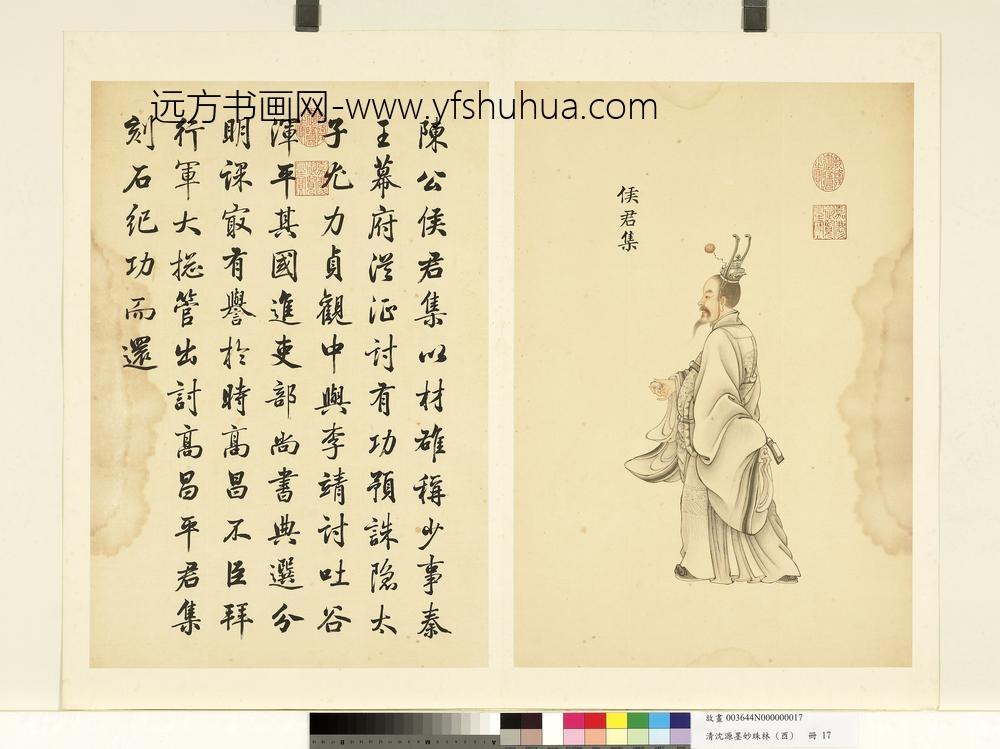 远方书画网-www.yfshuhua.com
侯君集
陳公侯君集以材雄稱少事秦
王幕府從征討有功預誅隐太
子尤力貞觀中與李靖討吐谷
渾平其國進吏部尚書典選分
明課㝡有譽於時高昌不臣拜
行軍大摠管出討高昌平君集
刻石紀功而還
故畫 003644N000000017
清沈源墨妙珠林（酉） 冊 17